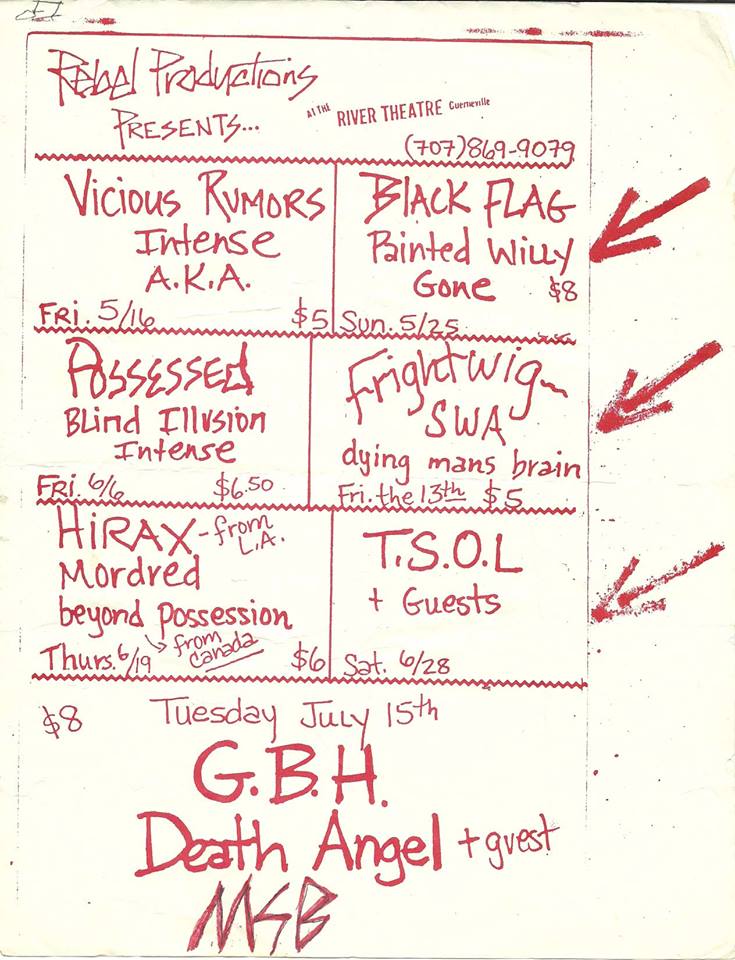 Rebel Productions
PRESENTS...
AT THE RIVER THEATRE Guerneville
(707)869-9079
Vicious Rumors
Intense
A.K.A.
Fri. 5/16 $5
BLACK FLAG
Painted Willy
Gone $8
Sun. 5/25
Possessed
Blind Illusion
Intense
Fri. 6/6 $6.50
Frightwig
SWA
dying mans brain
Fri. the 13th $5
HiRAX - from L.A.
Mordred
beyond Possession
from Canada
Thurs. 6/19 $6
T.S.O.L
+ Guests
Sat. 6/28
$8 Tuesday July 15th
G.B.H.
Death Angel + guest
MSB